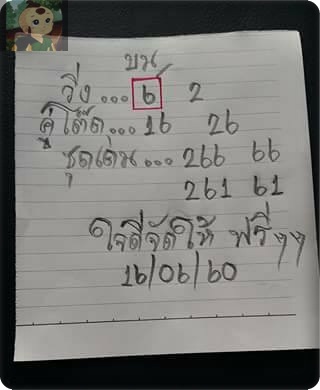 บน
วิ่ง... 6 2
คู่โต๊ด... 16 26
ชุดเด่น... 266 66
261 61
ใจดีจัดให้ ฟรีๆๆ
16/06/60